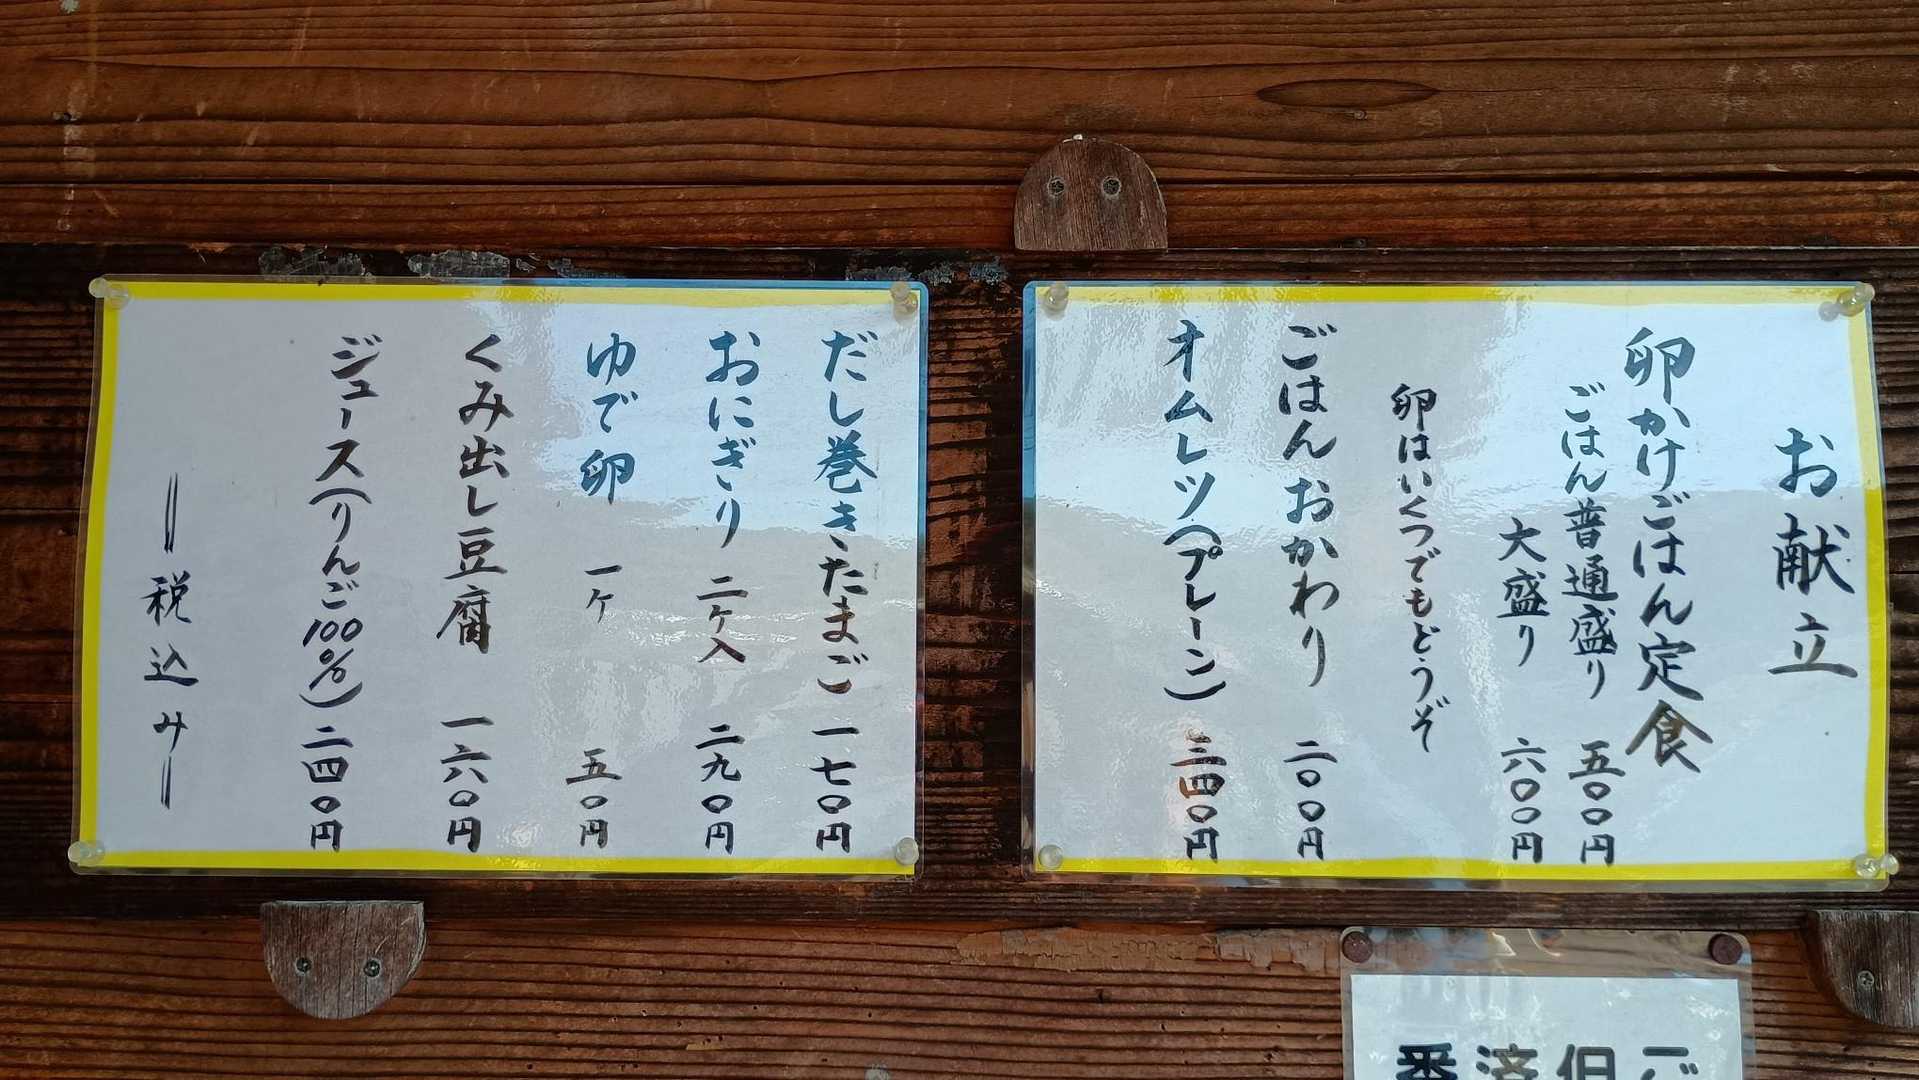 お献立
卵かけごはん定食
ごはん普通盛り 五〇〇円
大盛り 六〇〇円
卵はいくつでもどうぞ
ごはんおかわり 二〇〇円
オムレツ(プレーン) 三四〇円
だし巻きたまご 一七〇円
おにぎり 二ヶ入 二九〇円
ゆで卵 一ヶ 五〇円
くみ出し豆腐 一六〇円
ジュース(りんご100%) 二四〇円
＝税込み＝